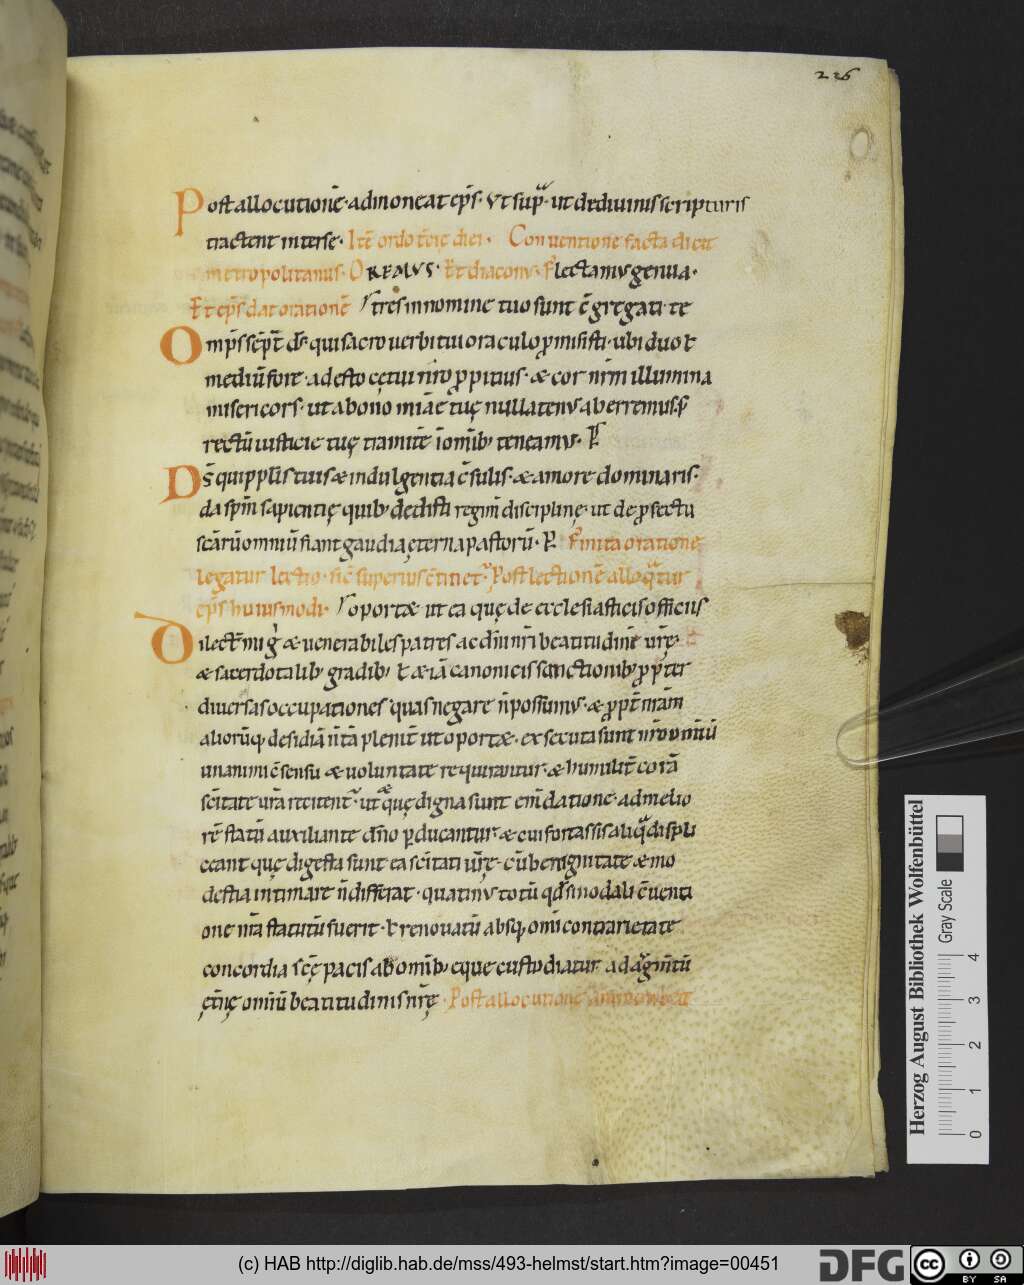 226
Post allocutionē · admoneat ep̄s · ut sup̄ · ut de diuinis scripturis
tractent inter se · Itē ordo t̄cie diei · Conuentione facta dicat
metropolitanus · OREMUS · Et diaconus · Flectamus genua ·
Et ep̄s dat orationē tres in nomine tuo sunt c̄gregati · te
Omp̄s sēpt̄ ds̄ · qui sacro uerbi tui oraculo promisisti · ubi duo ł
mediū fore · adesto cętui nr̄o ppitius · & cor nr̄m illumina
misericors · ut a bono miāe tuę nullatenus aberremus · s;
rectū iusticie tuę tramitē ī omīb; teneamus · P
Ds̄ qui pplīs tuis & indulgentia c̄sulis · & amore dominaris ·
da spm̄ sapientię quib; dedisti regim̄ disciplinę · ut de pfectu
scārū omniū fiant gaudia ęterna pastorū · P Finita oratione
legatur lectio · sic̄ superius c̄tinet · Post lectionē alloqtur
ep̄s huiusmodi · oport& ut ea quę de ecclesiasticis officiis
Dilect̄mi & uenerabiles patres ac dn̄i nr̄i beatitudinē ur̄ę
& sacerdotalib; gradib; ł & iā canonicis sanctionib; pp̄ter
diuersas occupationes quas negare n̄ possumus · & ppt̄ nr̄am
aliorūq; desidiā n̄ tā plenit̄ ut oport& · exsecuta sunt nr̄ om̄iū
unanimi c̄sensu & uoluntate requirantur · & humilit̄ corā
sc̄itate ur̄a recitent̄ · ut quę digna sunt em̄datione · ad melio
rē statū auxiliante dn̄o pducantur & cui fortassis aliq̄ displi
ceant quę digesta sunt ea sc̄itati ur̄ę · cū benignitate & mo
destia intimare n̄ differat · quatinus totū qd̄ sinodali c̄uenti
one nr̄a statutū fuerit · ł renouatū absq; omi contrarietate
concordia sc̄ę pacis ab omīb; eque custodiatur ad augm̄tū
ęt̄nę omīū beatitudinis nr̄ę · Post allocutionē
Herzog August Bibliothek Wolfenbüttel
Gray Scale
0 1 2 3 4
(c) HAB http://diglib.hab.de/mss/493-helmst/start.htm?image=00451
DFG
cc BY SA